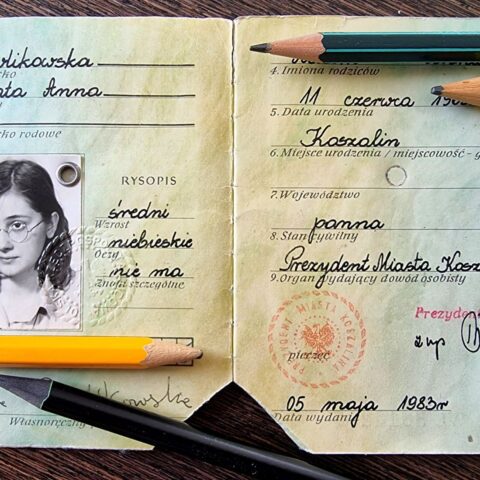 Anna
RYSOPIS
średni
Wzrost
niebieskie
Oczy
nie ma
Znaki szczególne
4. Imiona rodziców
11 czerwca
5. Data urodzenia
Koszalin
6. Miejsce urodzenia / miejscowość - g
7. Województwo
panna
8. Stan cywilny
Prezydent Miasta Kosz
9. Organ wydający dowód osobisty
PREZYDENT MIASTA KOSZALINA
pieczęć
Prezyden
zup
05 maja 1983r
Data wydania
Własnoręczny